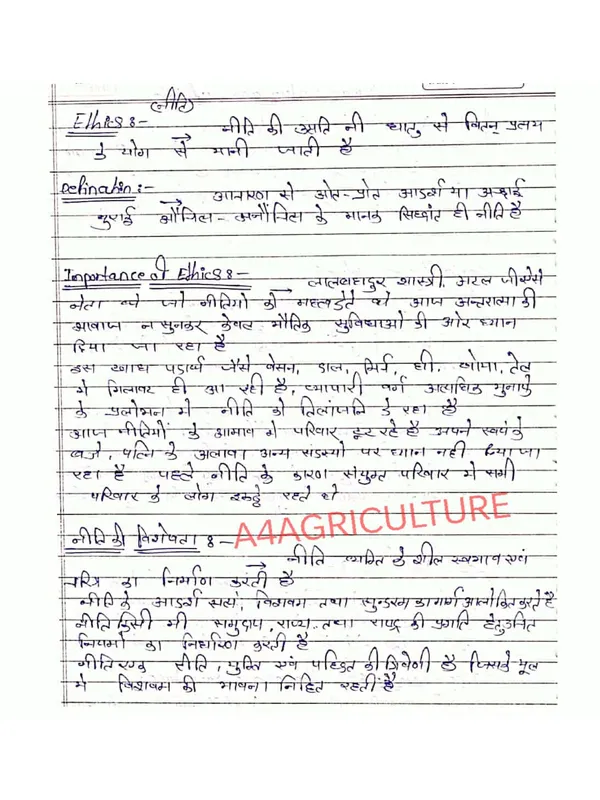 (नीति)
Ethics :- → नीति की उत्पति नी धातु से क्तिन् प्रत्यय
के योग से मानी जाती है
Defination :- आचरण से ओत-प्रोत आदर्श या अच्छाई
बुराई औचित्य-अनौचित्य के मानक सिद्धांत ही नीति है
Importance of Ethics :- → लालबहादुर शास्त्री, अटल जी जैसे
नेता थे जो नीतियों को महत्व देते थे आज अन्तरात्मा की
आवाज न सुनकर केवल भौतिक सुविधाओं की ओर ध्यान
दिया जा रहा है
इस खाद्य पदार्थ जैसे बेसन, दाल, मिर्च, घी, खोया, तेल
में मिलावट ही आ रही है, व्यापारी वर्ग अत्यधिक मुनाफे
के प्रलोभन में नीति को तिलांजति दे रहा है
आज नीतियों के अभाव में परिवार टूट रहे है अपने स्वयं के
बच्चे, पत्नि के अलावा अन्य सदस्यों पर ध्यान नही दिया जा
रहा है पहले नीति के कारण संयुक्त परिवार में सभी
परिवार के लोग इकट्ठे रहते थे
A4AGRICULTURE
नीति की विशेषता :- → नीति व्यक्ति के शील स्वभाव एवं
चरित्र का निर्माण करती है
नीति के आदर्श सत्यं, शिवम तथा सुन्दरम का मार्ग आलोकित करते है
नीति किसी भी समुदाय, राज्य तथा राष्ट्र की प्रगति हेतु उचित
नियमों का निर्धारण करती है
नीति एक रीति, युक्ति एवं पद्धित की त्रिवेणी है जिसके मूल
में शिवम की भावना निहित रहती है